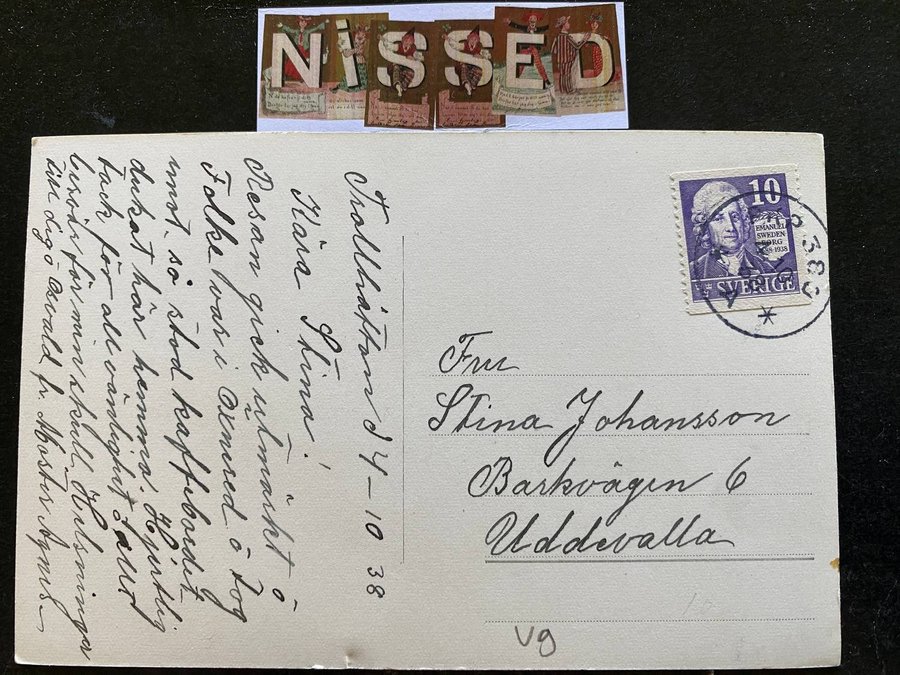 NISSED
Trollhättan 24-10 38
Kära Stina!
Resan gick utmärkt o
Folke var i Öxnered o tog
mot, så stod kaffebordet
dukat här hemma. Hjärtlig
tack för all vänlighet samt
besvär för min skull. Helsninga
till dig o Osvald fr. Moster Agnes
10
EMANUEL
SWEDEN-
BORG
1688-1938
SVERIGE
383
Fru
Stina Johansson
Barkvägen 6
Uddevalla
vg